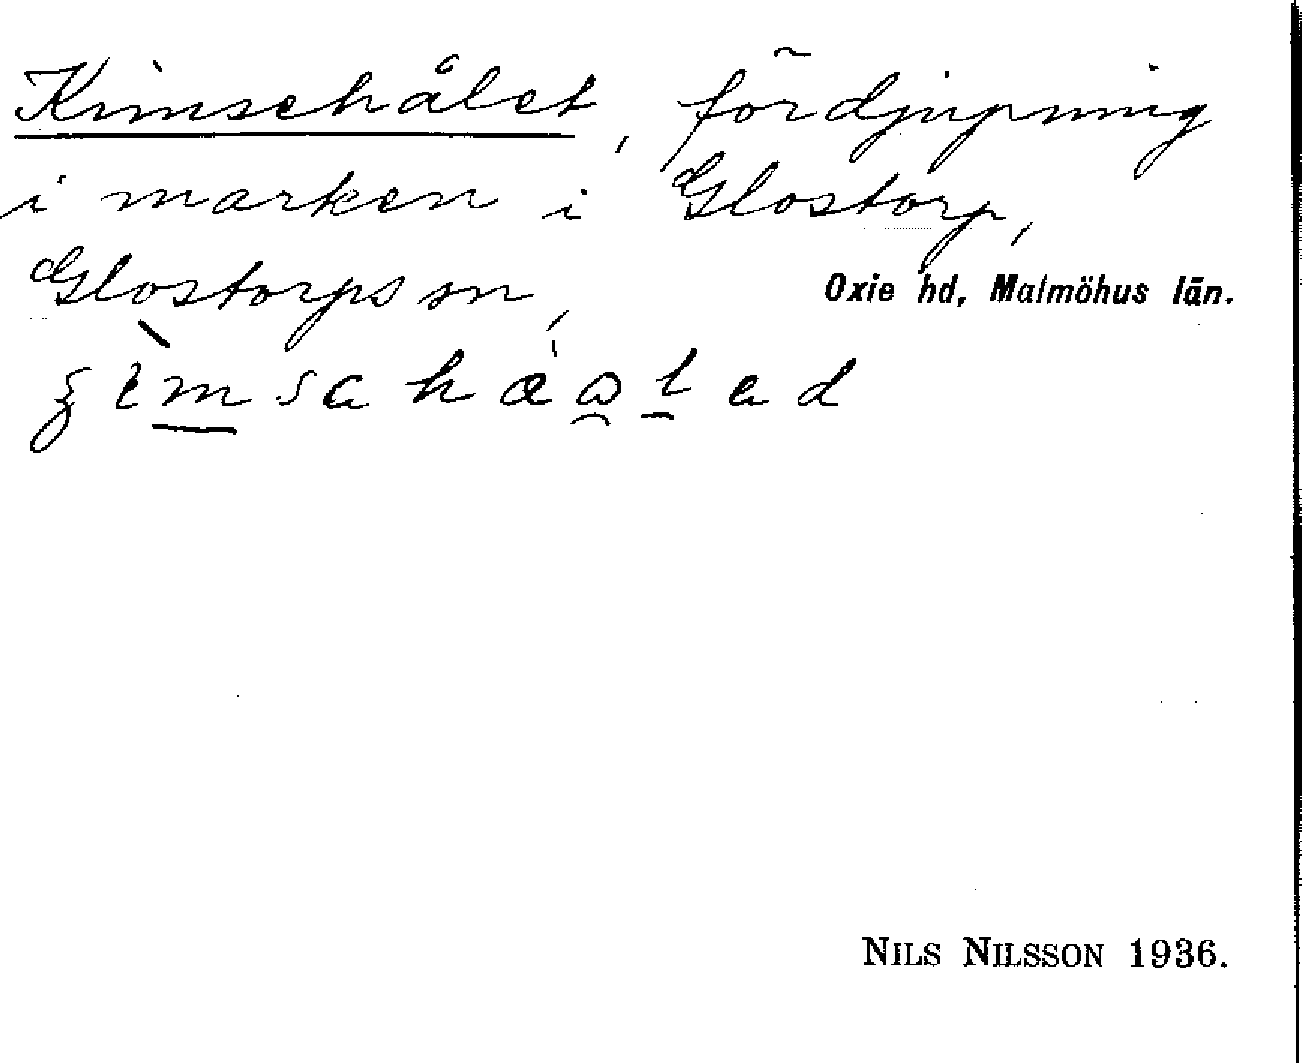 Kimsehålet, fördjupning
i marken i Glostorp,
Glostorps sn,
Oxie hd, Malmöhus län.
NILS NILSSON 1936.